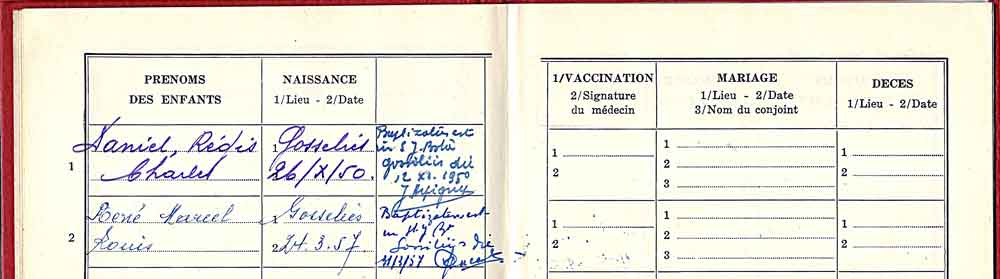 PRENOMS
DES ENFANTS
NAISSANCE
1/Lieu - 2/Date
1/VACCINATION
2/Signature
du médecin
MARIAGE
1/Lieu - 2/Date
3/Nom du conjoint
DECES
1/Lieu - 2/Date
1
Daniel, Régis
Charles
1 Gosselies
26/X/50.
Baptizatus est
in S J. Bta
Gosselies die
12 XI. 1950
1
2
1
2
3
1
2
2
René Marcel
Louis
Gosselies
2 24.3.57.
Baptizatus est
in
Gosselies die
1
2
1
2
3
1
2